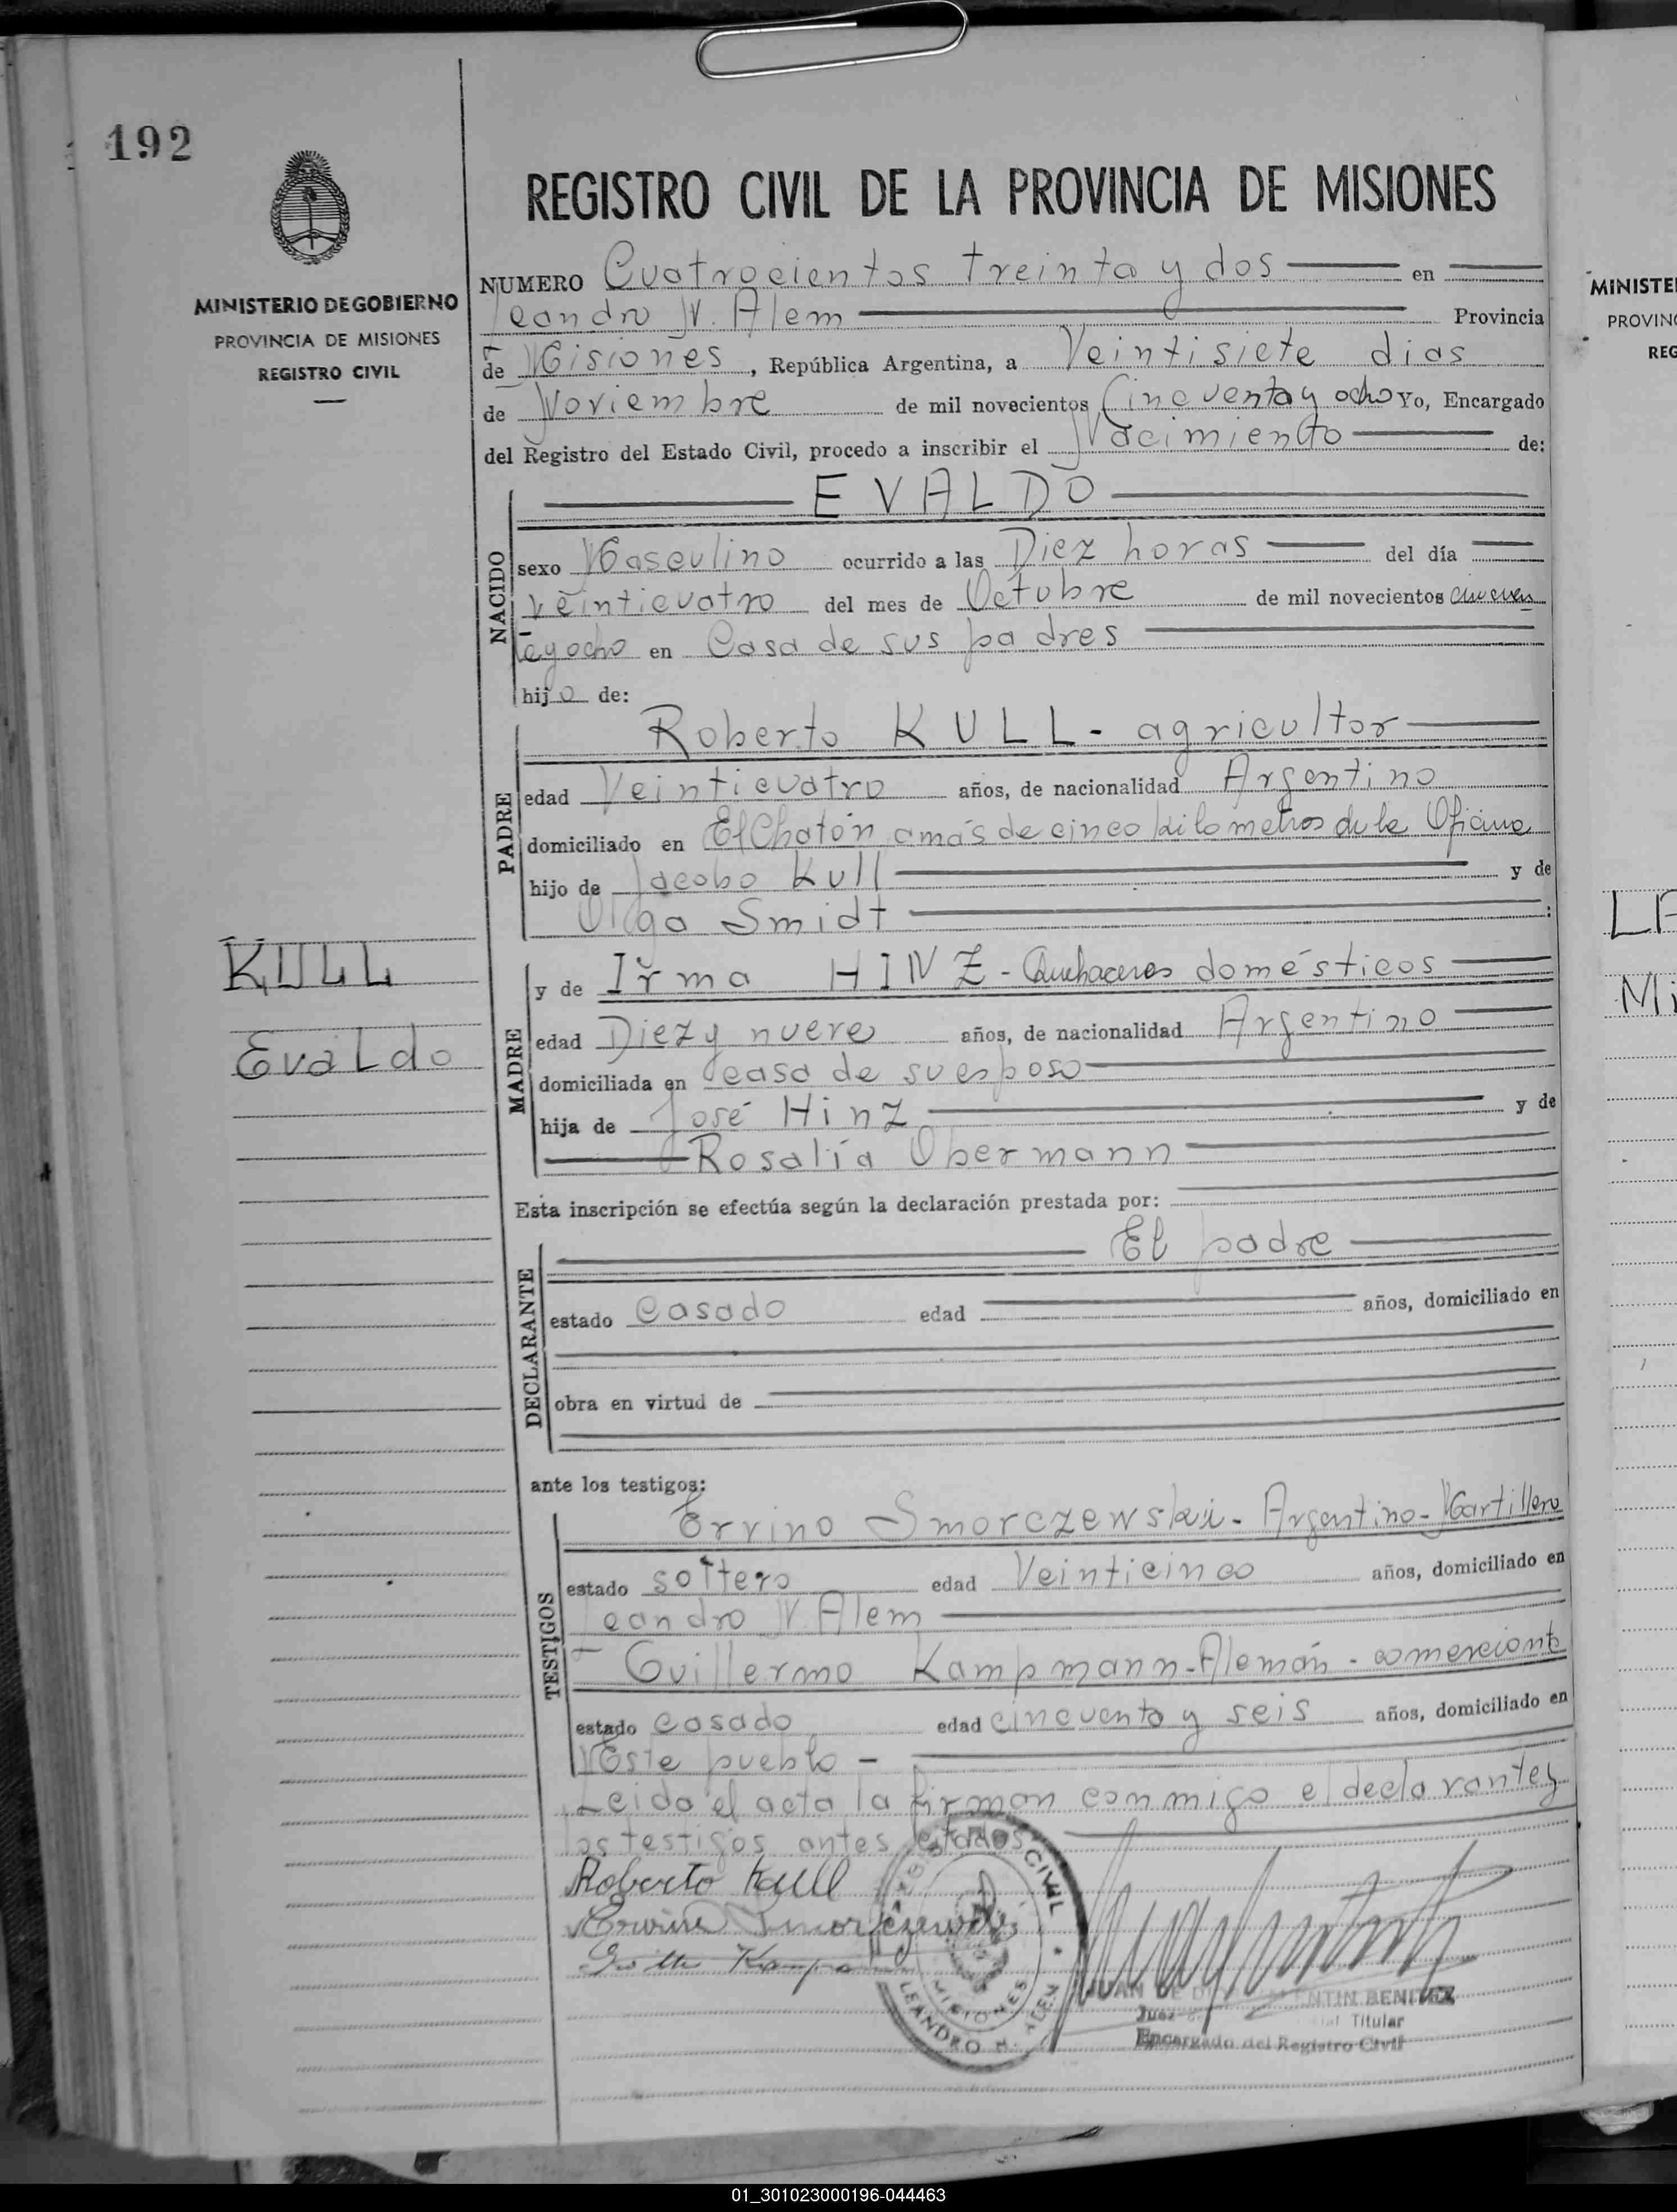 192
MINISTERIO DE GOBIERNO
PROVINCIA DE MISIONES
REGISTRO CIVIL
REGISTRO CIVIL DE LA PROVINCIA DE MISIONES
NUMERO Cuatrocientos treinta y dos en
Leandro N. Alem Provincia
de Misiones, República Argentina, a Veintisiete dias
de Noviembre de mil novecientos Cincuenta y ocho Yo, Encargado
del Registro del Estado Civil, procedo a inscribir el Nacimiento de:
NACIDO
EVALDO
sexo Masculino ocurrido a las Diez horas del día
veinticuatro del mes de Octubre de mil novecientos cincuen
ta y ocho en Casa de sus padres
hijo de:
PADRE
Roberto KULL - agricultor
edad Veinticuatro años, de nacionalidad Argentino
domiciliado en El Chatón a más de cinco kilometros de la Oficina
hijo de Jacobo Kull y de
Olga Smidt :
KULL
Evaldo
MADRE
y de Irma HINZ - Quehaceres domésticos
edad Diez y nueve años, de nacionalidad Argentino
domiciliada en casa de su esposo
hija de José Hinz y de
Rosalía Obermann
Esta inscripción se efectúa según la declaración prestada por:
DECLARANTE
El padre
estado Casado edad años, domiciliado en
obra en virtud de
ante los testigos:
TESTIGOS
Ervino Smorczewski - Argentino - Martillero
estado soltero edad Veinticinco años, domiciliado en
Leandro N. Alem
Guillermo Kampmann - Alemán - comerciante
estado casado edad cincuenta y seis años, domiciliado en
Este pueblo -
Leida el acta la firman conmigo el declarante y
los testigos antes citados
Roberto Kull
Ervino Smorczewski
Kampmann
REGISTRO CIVIL
MISIONES
LEANDRO N. ALEM
JUAN DE BENITEZ
Juez Titular
Encargado del Registro Civil
MINISTE
PROVIN
REG
LA
Mi
01_301023000196-044463